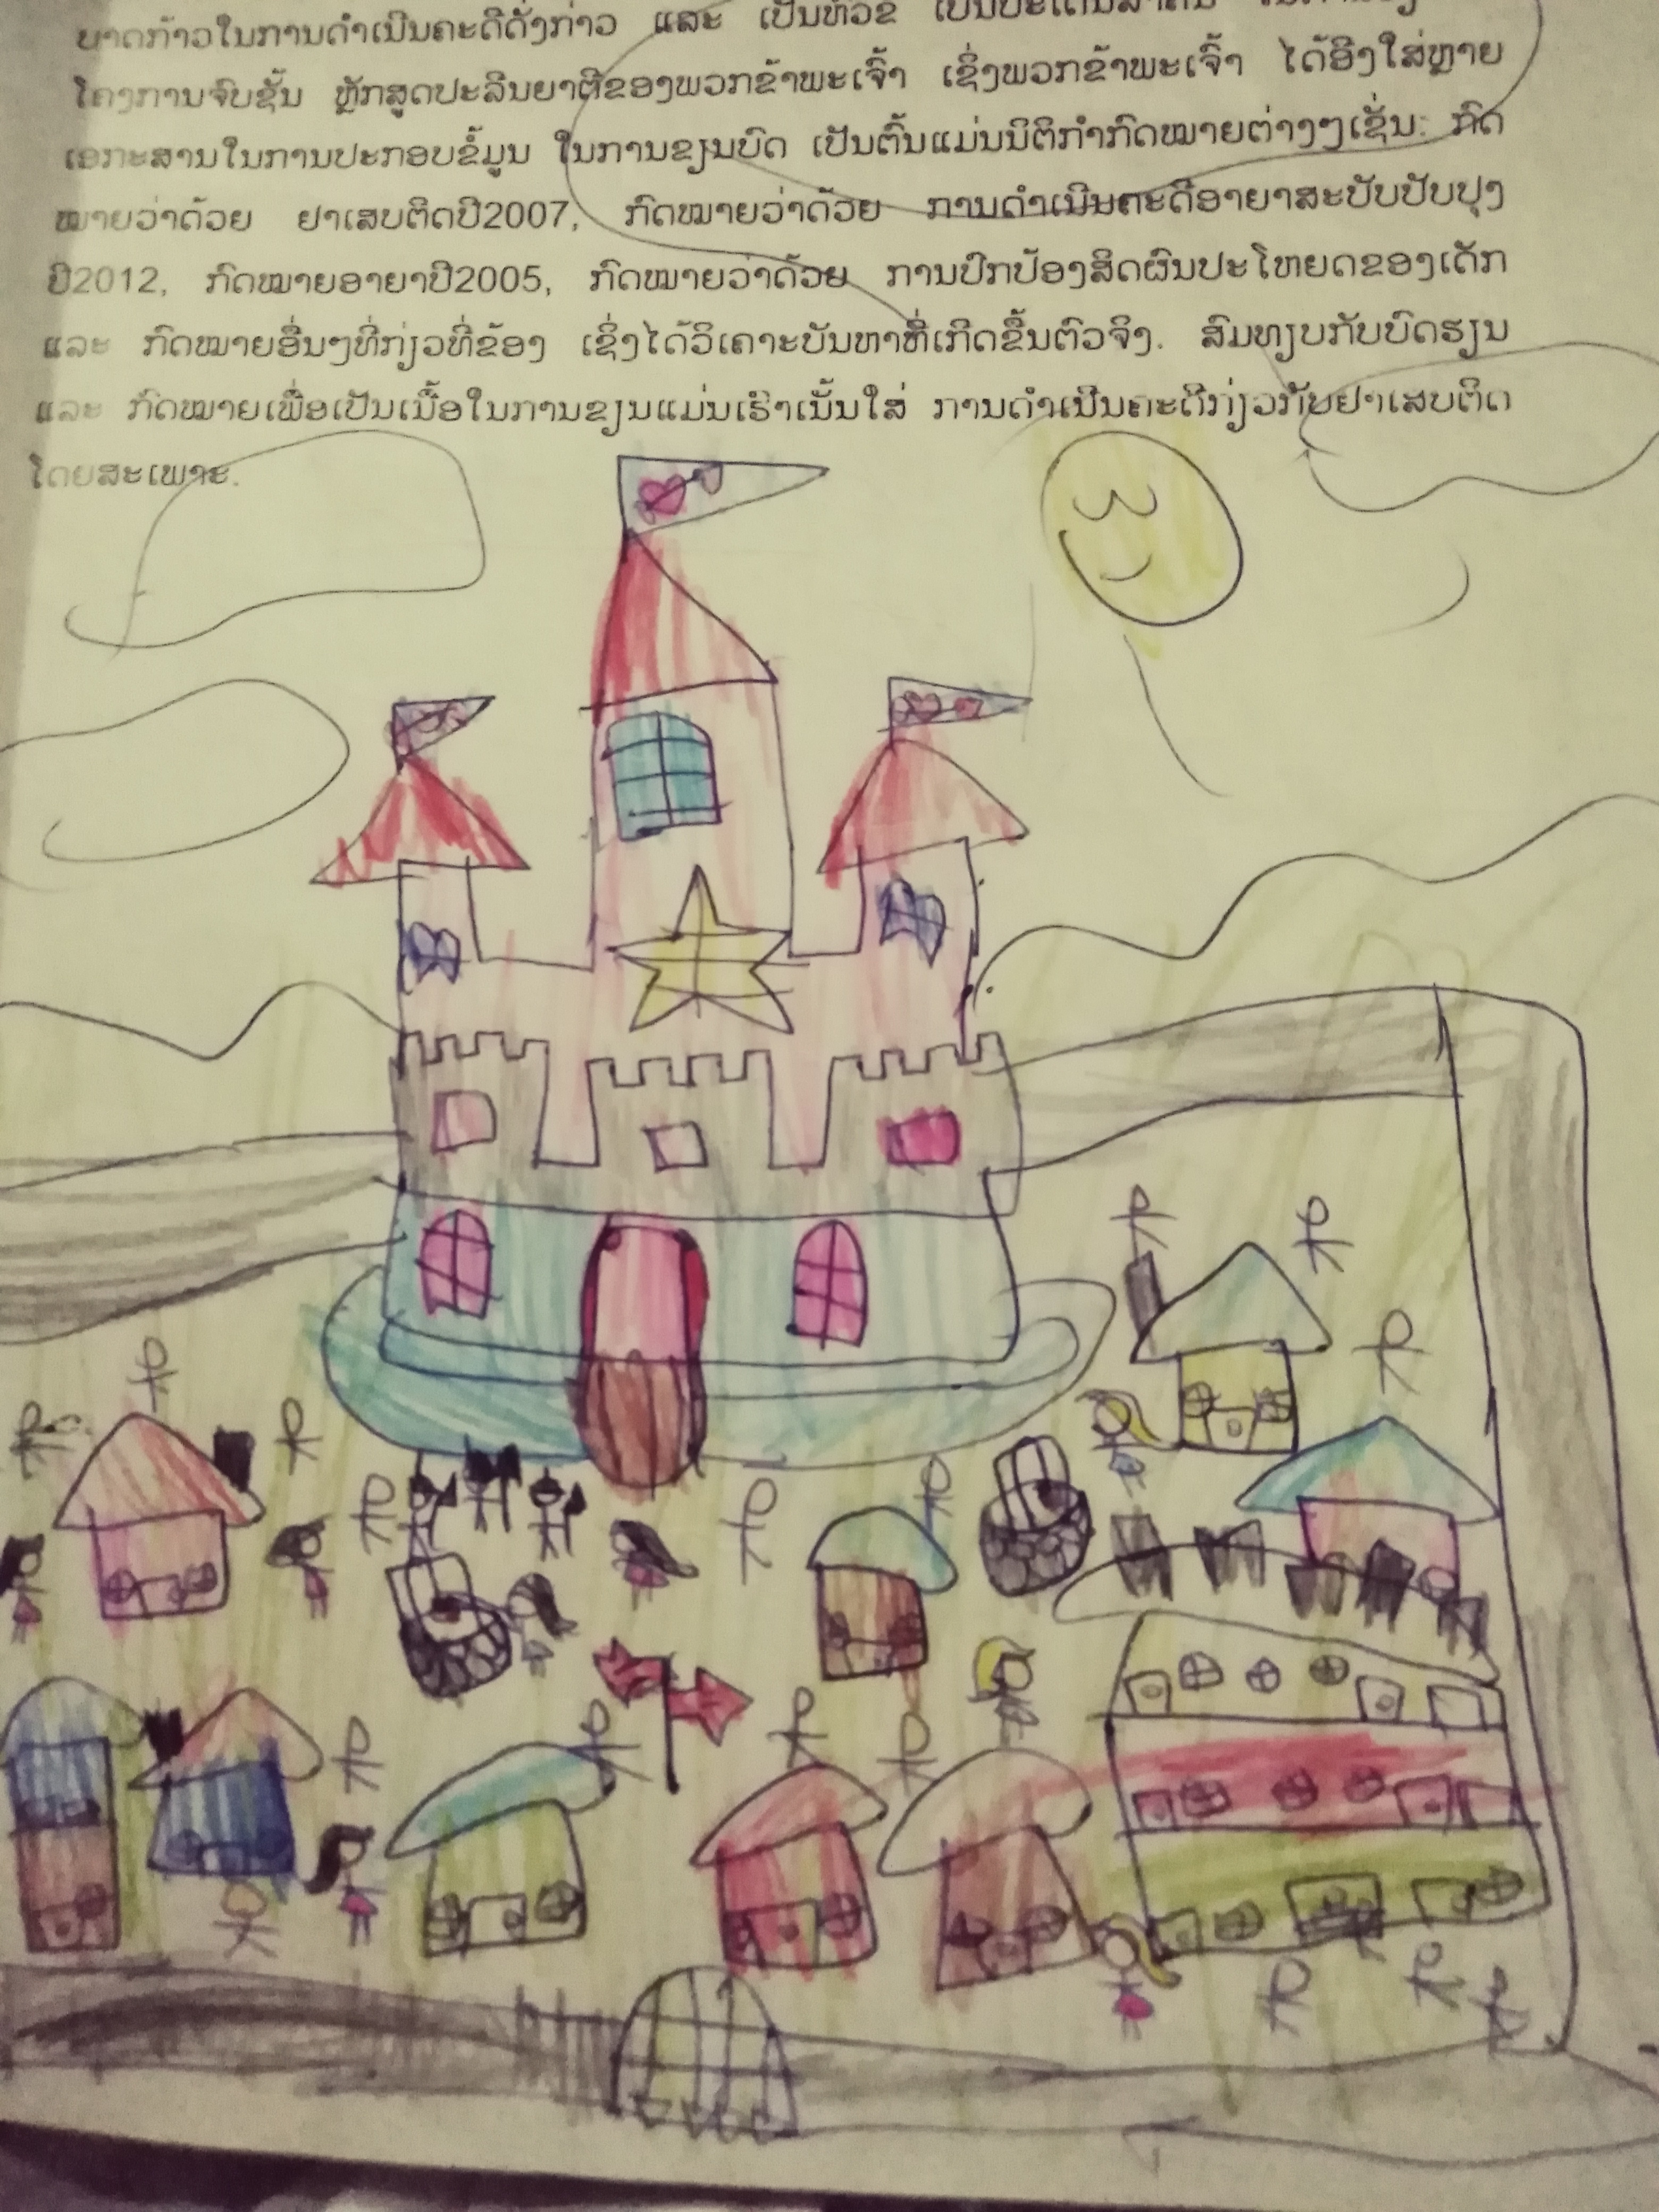 ບາດກ້າວໃນການດຳເນີນຄະດີດັ່ງກ່າວ ແລະ ເປັນຫົວຂໍ້
ໂຄງການຈົບຊັ້ນ ຫຼັກສູດປະລິນຍາຕີຂອງພວກຂ້າພະເຈົ້າ ເຊິ່ງພວກຂ້າພະເຈົ້າ ໄດ້ອີງໃສ່ຫຼາຍ
ເອກະສານໃນການປະກອບຂໍ້ມູນ ໃນການຂຽນບົດ ເປັນຕົ້ນແມ່ນນິຕິກຳກົດໝາຍຕ່າງໆເຊັ່ນ: ກົດ
ໝາຍວ່າດ້ວຍ ຢາເສບຕິດປີ2007, ກົດໝາຍວ່າດ້ວຍ ການດຳເນີນຄະດີອາຍາສະບັບປັບປຸງ
ປີ2012, ກົດໝາຍອາຍາປີ2005, ກົດໝາຍວ່າດ້ວຍ ການປົກປ້ອງສິດຜົນປະໂຫຍດຂອງເດັກ
ແລະ ກົດໝາຍອື່ນໆທີ່ກ່ຽວທີ່ຂ້ອງ ເຊິ່ງໄດ້ວິເຄາະບັນຫາທີ່ເກີດຂຶ້ນຕົວຈິງ. ສົມທຽບກັບບົດຮຽນ
ແລະ ກົດໝາຍເພື່ອເປັນເນື້ອໃນການຂຽນແມ່ນເຮົາເນັ້ນໃສ່ ການດຳເນີນຄະດີກ່ຽວກັບຢາເສບຕິດ
ໂດຍສະເພາະ.